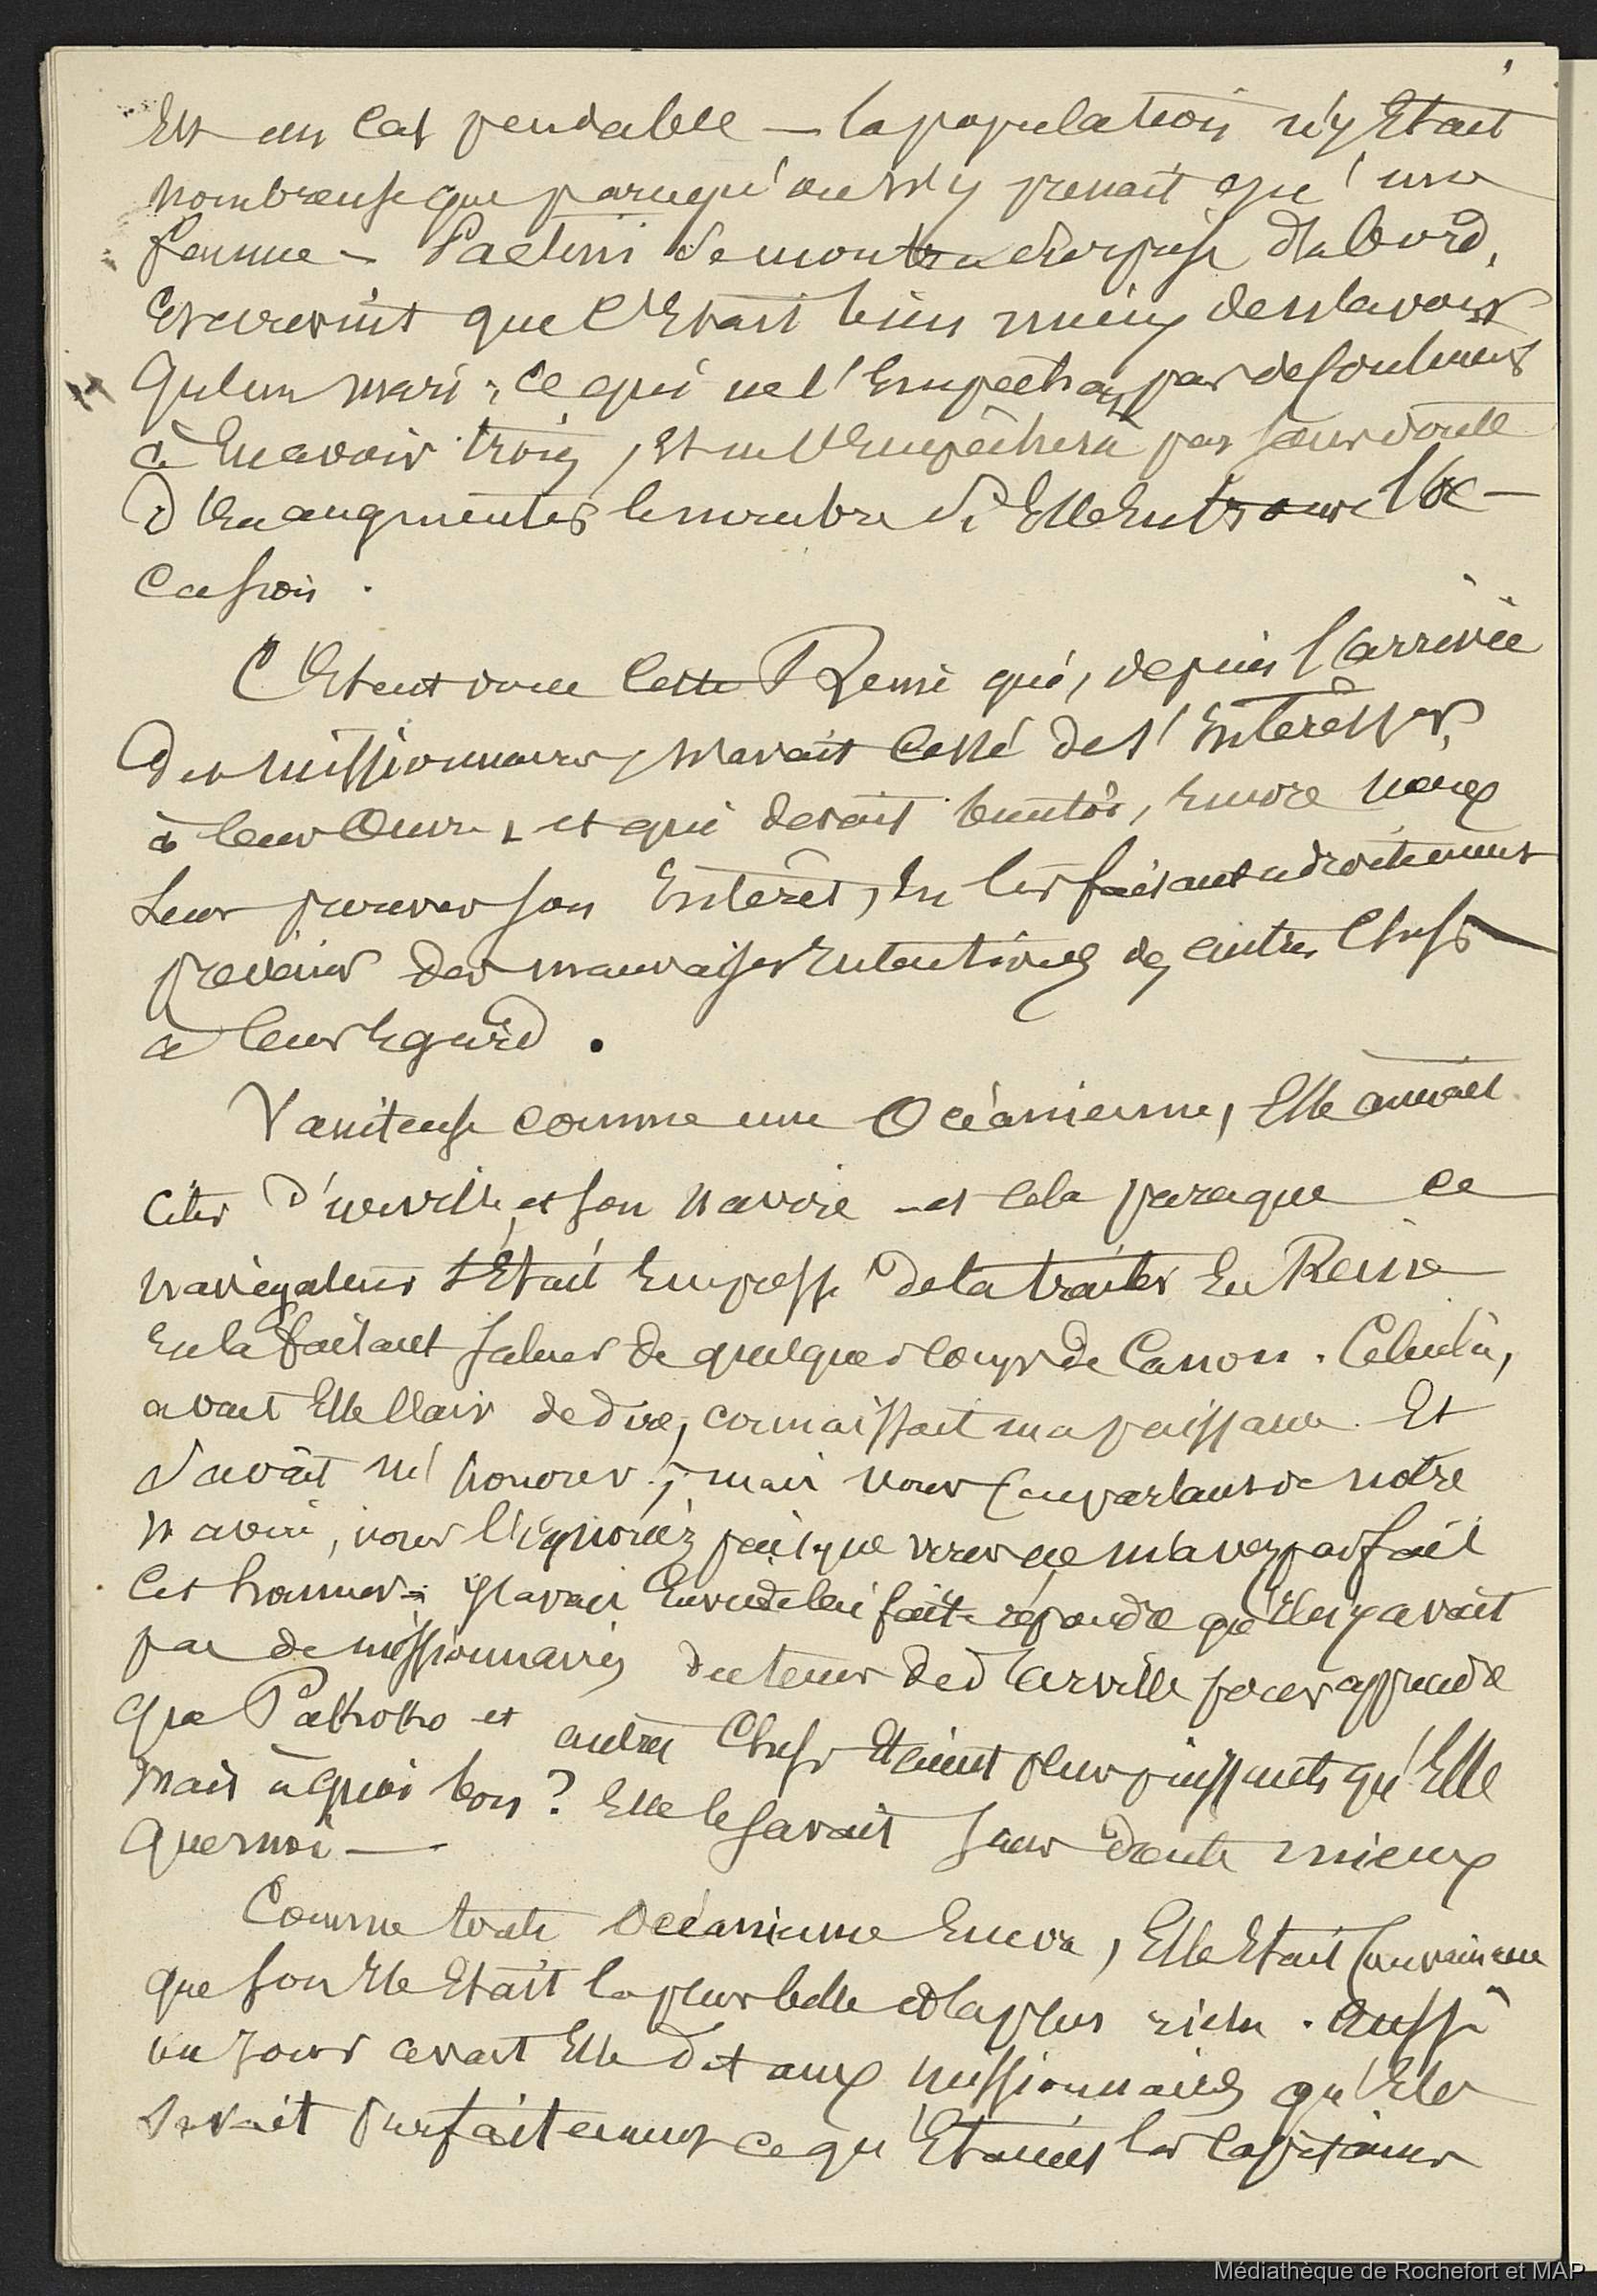 Est un cas pendable — la population n'y Etait
nombreuse que parcequ'on n'y prenait qu'une
femme — Paetini se montra surprise d'abord,
Et convint que c'Etait bien mieux de n'avoir
qu'un mari ; ce qui ne l'Empêcha pas de continuer
à En avoir trois, Et ne l'Empêchera pas sans doute
d'En augmenter le nombre si Elle En trouve l'oc-
casion .
C'Etait donc cette Reine qui, depuis l'arrivée
des missionnaires, n'avait cessé de s'Intéresser,
à leur Œuvre, et qui devait bientôt, Encore mieux
leur prouver son Intérêt, En les faisant adroitement
prévenir des mauvaises Intentions des autres Chefs
à leur Egard .
Vaniteuse comme une Océanienne, Elle aimait
citer d'urville, et son navire — et cela parceque ce
navigateur s'Etait Empressé de la traiter En Reine
En la faisant saluer de quelques coups de Canon . Celui là,
avait Elle l'air de dire, connaissait ma puissance Et
savait m'honorer ; mais vous (en parlant de notre
navire, vous l'Ignoriez puisque vous ne m'avez pas fait
ces honneurs . J'avais Envie de lui faire répondre qu'Il n'y avait
pas de missionnaires du temps de d'Urville pour apprendre
que Pakoko et autres Chefs Etaient plus puissants qu'Elle
mais à quoi bon ? Elle le savait sans doute mieux
que moi —
Comme toute Océanienne Encore, Elle Etait Convaincue
que son Ile Etait la plus belle et la plus riche . Aussi
un jour avait Elle dit aux missionnaires qu'Elle
savait parfaitement ce qu'Etaient les capitaines
Médiathèque de Rochefort et MAP